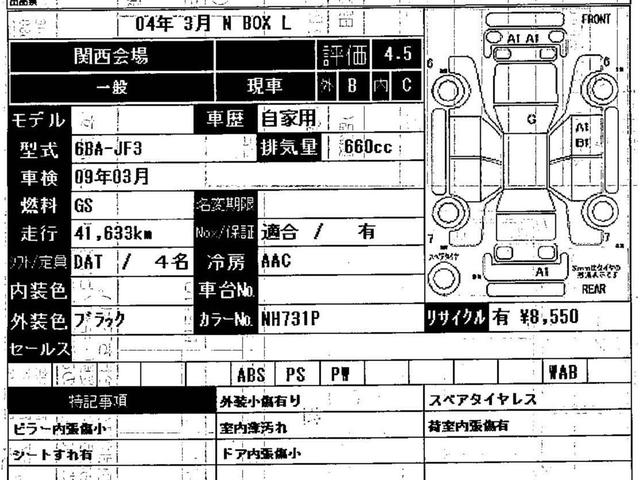 04年 3月 N BOX L
関西会場 評価 4.5
一般 現車 外 B 内 C
モデル 車歴 自家用
型式 6BA-JF3 排気量 660cc
車検 09年03月
燃料 GS 名変期限
走行 41,633km Nox/保証 適合 / 有
シフト/定員 DAT / 4名 冷房 AAC
内装色 車台No.
外装色 ブラック カラーNo. NH731P
セールス
ABS PS PW WAB
特記事項 外装小傷有り スペアタイヤレス
ピラー内張傷小 室内薄汚れ 荷室内張傷有
シートすれ有 ドア内張傷小
FRONT
A1 A1
6 6
G
A1
B1
7 7
スペアタイヤ
A1
REAR
リサイクル 有 ¥8,550